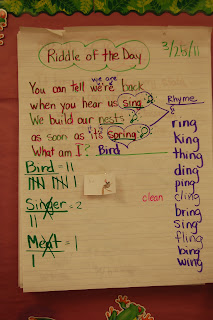 Riddle of the Day
3/25/11
we are
You can tell we're back
when you hear us sing. 2
We build our nests 2
as soon as it's Spring. 2
What am I? Bird
Rhyme
ring
king
thing
ding
ping
cling
bring
sing
fling
bing
wing
Bird = 11
Singer = 2
Meat = 1
clean